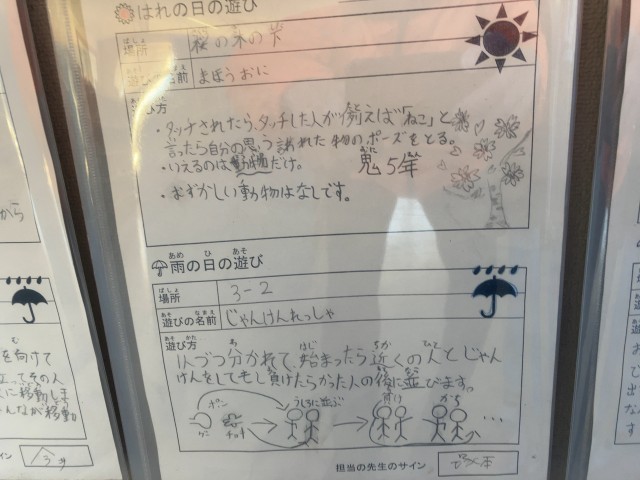 はれの日の遊び
場所 桜の木の岸
遊びの名前 まほうおに
遊び方
・タッチされたら、タッチした人が例えば「ねこ」と
言ったら自分の思う言われた物のポーズをとる。
・いえるのは動物だけ。
鬼5年
・むずかしい動物はなしです。
雨の日の遊び
場所 3-2
遊びの名前 じゃんけんれっしゃ
遊び方
1人づつ分かれて、始まったら近くの人とじゃん
けんをしてもし負けたらかった人の後に並びます。
ポン うしろに並ぶ まけ かち
グー チョキ
担当の先生のサイン
から
を向けて
って、その人
に移動しま
んなが移動
イン